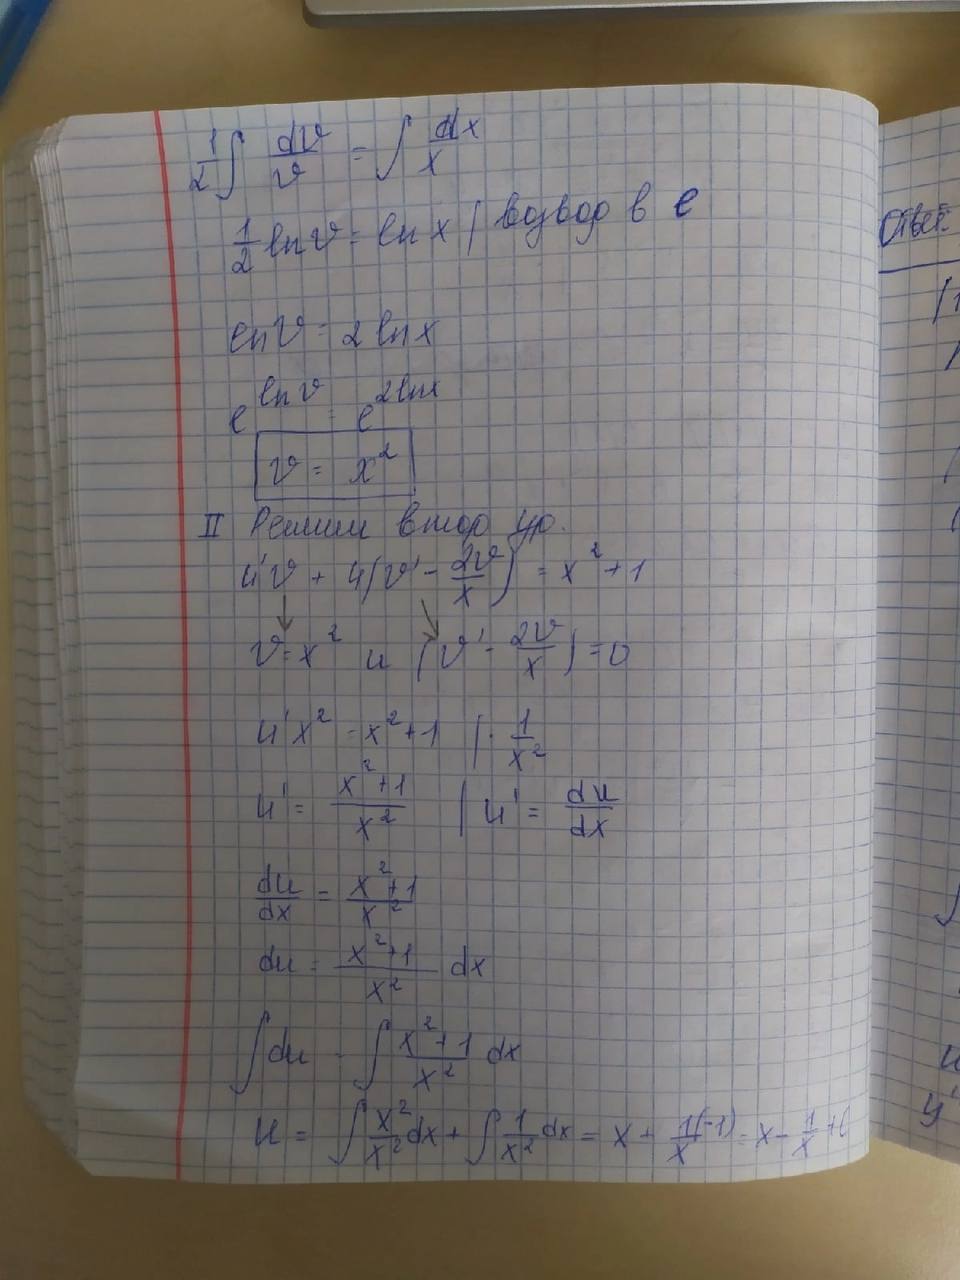 1/2 ∫ dv/v = ∫ dx/x
1/2 ln v = ln x / возвод в e
ln v = 2 ln x
e^(ln v) = e^(2 ln x)
v = x²
II Решим втор ур.
u'v + u(v' - 2v/x) = x² + 1
v = x² и (v' - 2v/x) = 0
u'x² = x² + 1 | · 1/x²
u' = (x² + 1)/x² / u' = du/dx
du/dx = (x² + 1)/x²
du = (x² + 1)/x² dx
∫ du = ∫ (x² + 1)/x² dx
u = ∫ x²/x² dx + ∫ 1/x² dx = x + 1/x (-1) = x - 1/x + C
Ответ: